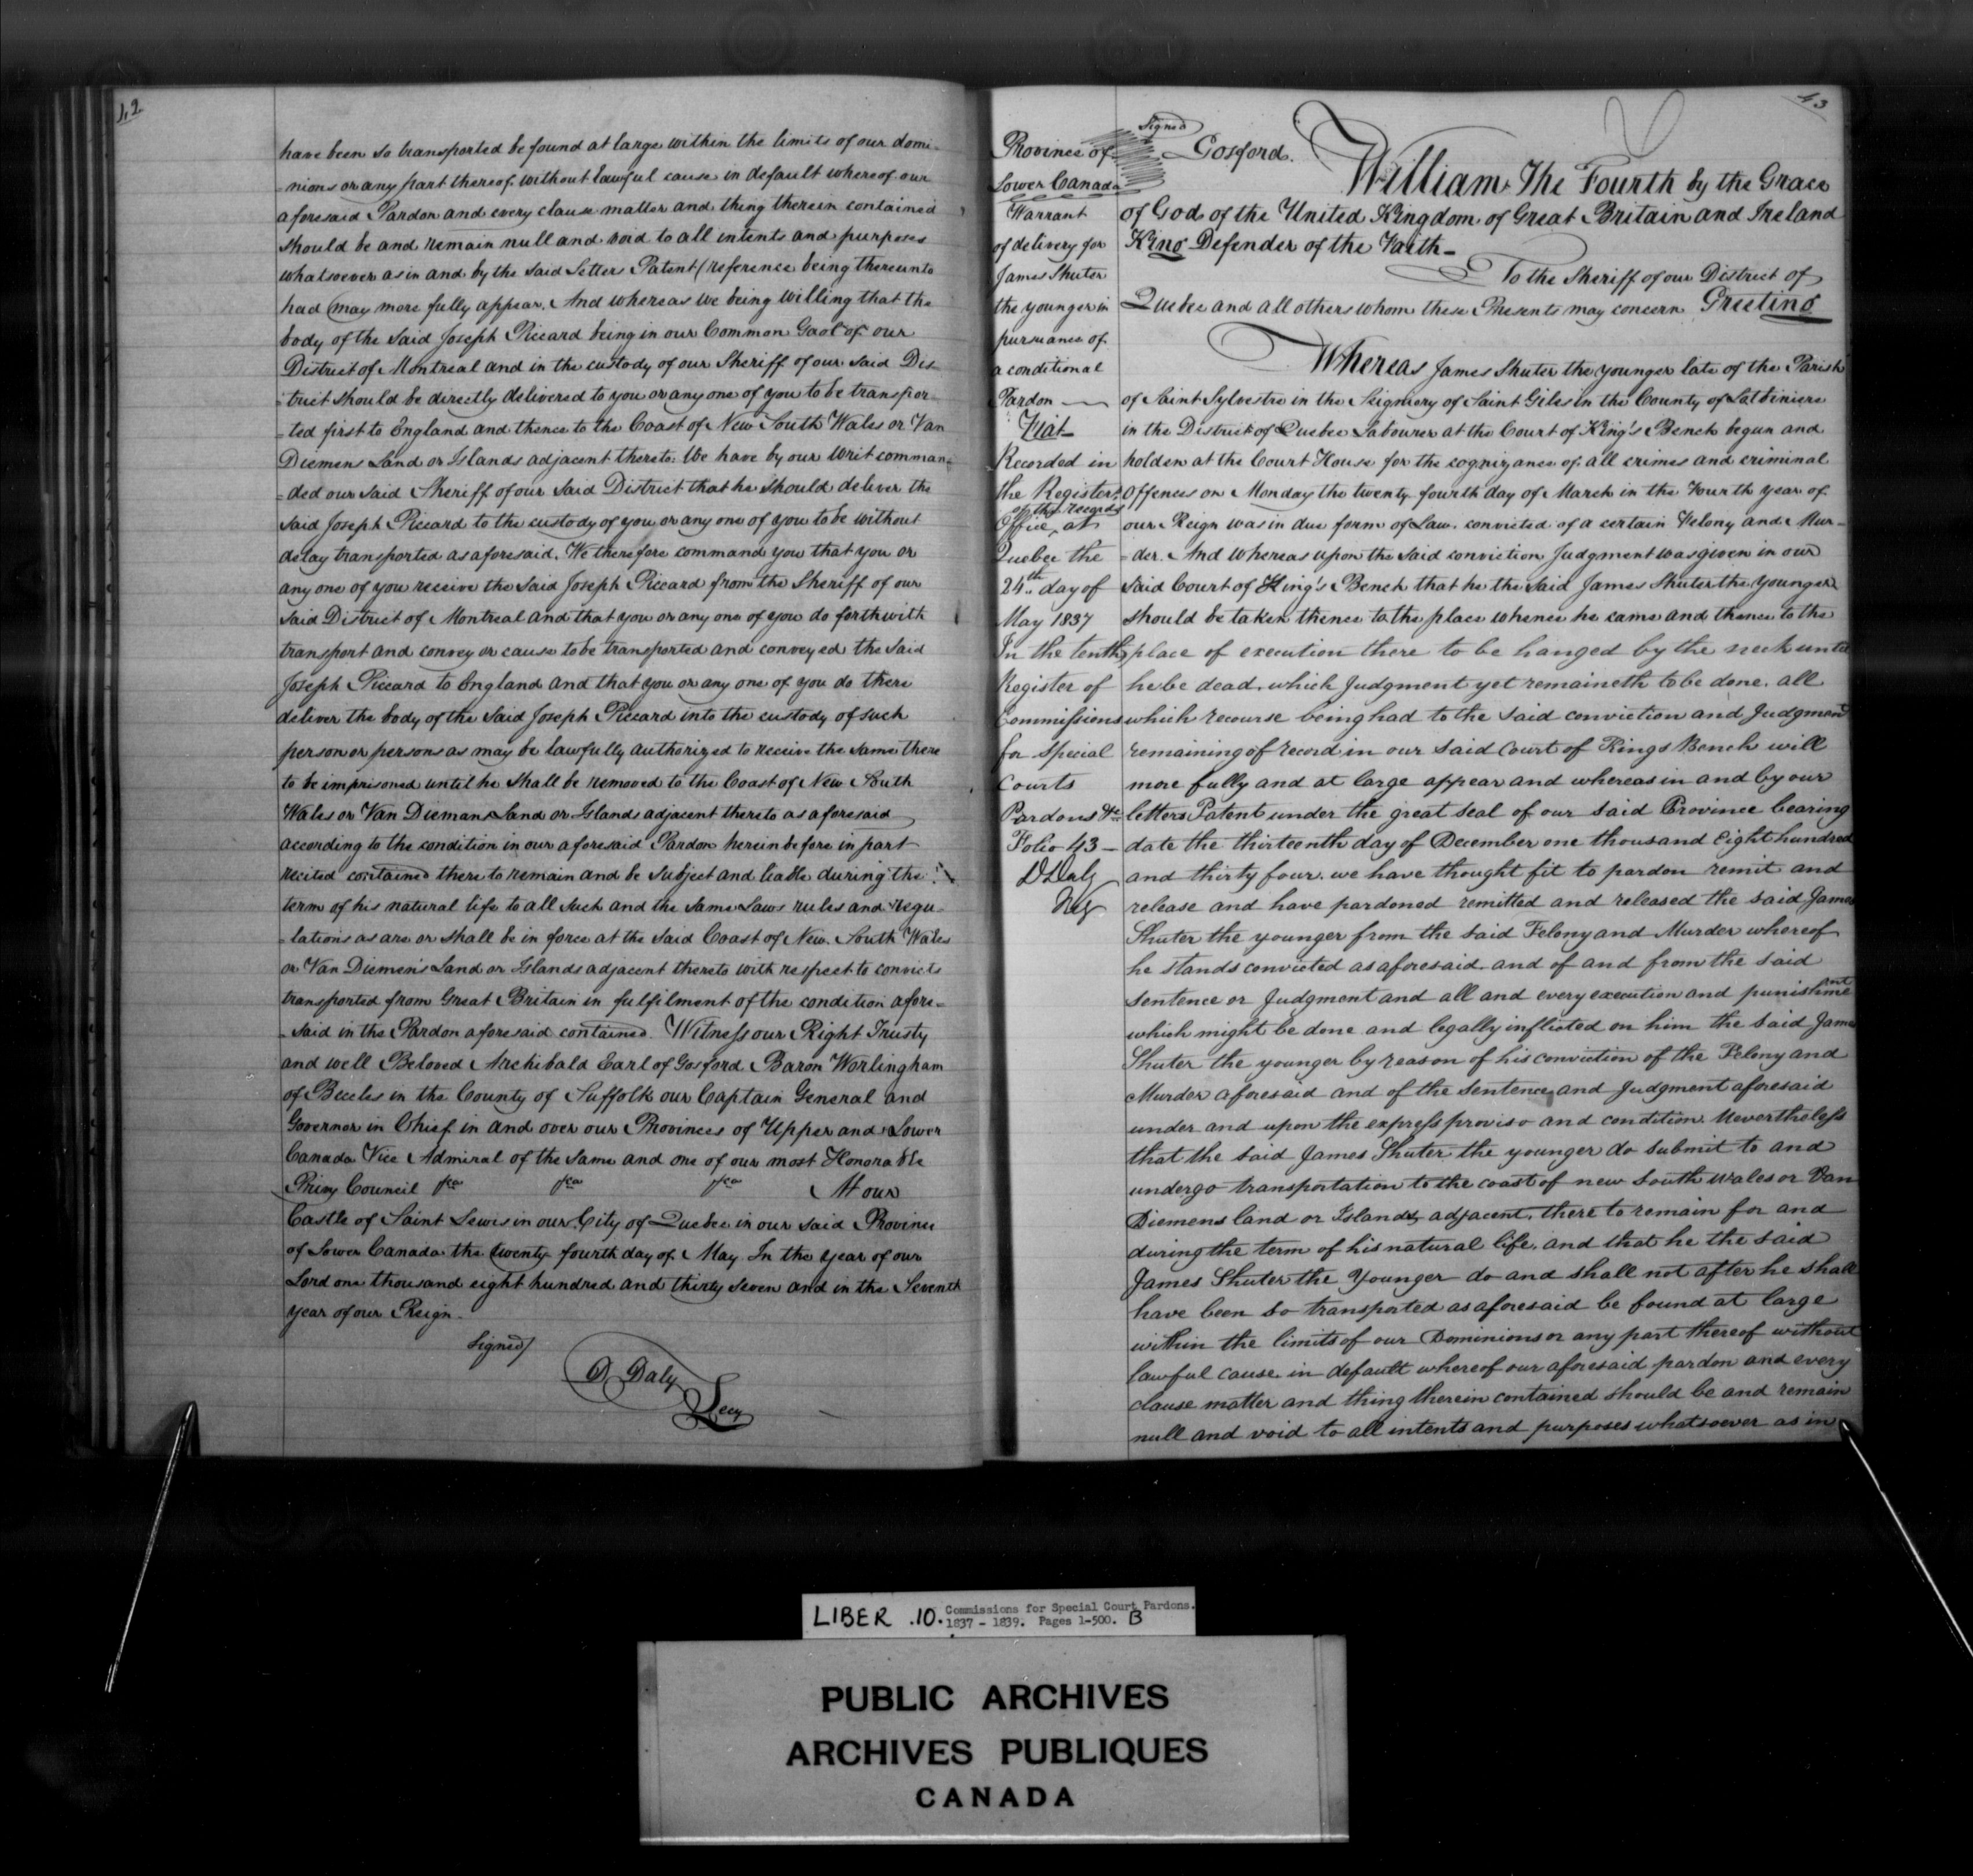 42
have been so transported be found at large within the limits of our domi-
=nions or any part thereof without lawful cause in default whereof our
aforesaid Pardon and every clause matter and thing therein contained
should be and remain null and void to all intents and purposes
whatsoever as in and by the said Letters Patent (reference being thereunto
had) may more fully appear. And whereas we being willing that the
body of the said Joseph Piccard being in our Common Gaol of our
District of Montreal and in the custody of our Sheriff of our said Dis-
=trict should be directly delivered to you or any one of you to be transpor-
=ted first to England and thence to the Coast of New South Wales or Van
Diemens Land or Islands adjacent thereto. We have by our writ comman-
=ded our said Sheriff of our said District that he should deliver the
said Joseph Piccard to the custody of you or any one of you to be without
delay transported as aforesaid. We therefore command you that you or
any one of you receive the said Joseph Piccard from the Sheriff of our
said District of Montreal and that you or any one of you do forthwith
transport and convey or cause to be transported and conveyed the said
Joseph Piccard to England and that you or any one of you do there
deliver the body of the said Joseph Piccard into the custody of such
person or persons as may be lawfully authorized to receive the same there
to be imprisoned until he shall be removed to the Coast of New South
Wales or Van Diemans Land or Islands adjacent thereto as aforesaid
according to the condition in our aforesaid Pardon herein before in part
recited contained there to remain and be subject and liable during the
term of his natural life to all such and the same Laws rules and regu-
=lations as are or shall be in force at the said Coast of New South Wales
or Van Diemen's Land or Islands adjacent thereto with respect to convicts
transported from Great Britain in fulfilment of the condition afore-
=said in the Pardon aforesaid contained. Witness our Right Trusty
and well Beloved Archibald Earl of Gosford Baron Worlingham
of Beccles in the County of Suffolk our Captain General and
Governor in Chief in and over our Provinces of Upper and Lower
Canada Vice Admiral of the same and one of our most Honorable
Privy Council &ca &ca &ca At our
Castle of Saint Lewis in our City of Quebec in our said Province
of Lower Canada the twenty fourth day of May In the year of our
Lord one thousand eight hundred and thirty seven and in the Seventh
year of our Reign.
Signed/
D Daly
Secy
43
Province of
Lower Canada
Warrant
of delivery for
James Shuter
the younger in
pursuance of
a conditional
Pardon
Fiat
Recorded in
the Registers
of the records
Office at
Quebec the
24th day of
May 1837
In the tenth
Register of
Commissions
for Special
Courts
Pardons &c
Folio 43
D Daly
Reg
Signed
Gosford.
William The Fourth by the Grace
of God of the United Kingdom of Great Britain and Ireland
King Defender of the Faith
To the Sheriff of our District of
Quebec and all others whom these Presents may concern Greeting
Whereas James Shuter the younger late of the Parish
of Saint Sylvestre in the Seigniory of Saint Giles in the County of Lotbiniere
in the District of Quebec Labourer at the Court of King's Bench begun and
holden at the Court House for the cognizance of all crimes and criminal
Offences on Monday the twenty fourth day of March in the Fourth year of
our Reign was in due form of Law convicted of a certain Felony and Mur-
=der. And whereas upon the said conviction Judgment was given in our
said Court of King's Bench that he the said James Shuter the younger
should be taken thence to the place whence he came and thence to the
place of execution there to be hanged by the neck until
he be dead. which Judgment yet remaineth to be done. all
which recourse being had to the said conviction and Judgment
remaining of record in our said Court of Kings Bench will
more fully and at large appear and whereas in and by our
letters Patent under the great seal of our said Province bearing
date the thirteenth day of December one thousand Eight hundred
and thirty four. we have thought fit to pardon remit and
release and have pardoned remitted and released the said James
Shuter the younger from the said Felony and Murder whereof
he stands convicted as aforesaid and of and from the said
sentence or Judgment and all and every execution and punishment
which might be done and legally inflicted on him the said James
Shuter the younger by reason of his conviction of the Felony and
Murder aforesaid and of the Sentence and Judgment aforesaid
under and upon the express proviso and condition Nevertheless
that the said James Shuter the younger do submit to and
undergo transportation to the coast of new South Wales or Van
Diemens land or Islands adjacent. there to remain for and
during the term of his natural life. and that he the said
James Shuter the Younger do and shall not after he shall
have been so transported as aforesaid be found at large
within the limits of our Dominions or any part thereof without
lawful cause in default whereof our aforesaid pardon and every
clause matter and thing therein contained should be and remain
null and void to all intents and purposes whatsoever as in
LIBER .10. Commissions for Special Court Pardons.
1837 - 1839. Pages 1-500. B
PUBLIC ARCHIVES
ARCHIVES PUBLIQUES
CANADA